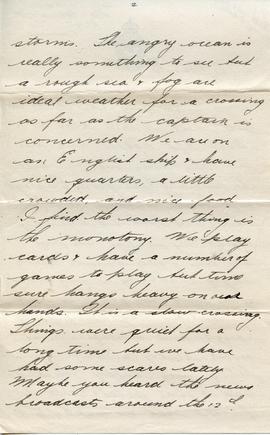 2
storms. The angry ocean is
really something to see but
a rough sea & fog are
ideal weather for a crossing
as far as the captain is
concerned. We are on
an English ship & have
nice quarters, a little
crowded, and nice food
I find the worst thing is
the monotony. We play
cards & have a number of
games to play but time
sure hangs heavy on our
hands. It is a slow crossing.
Things were quiet for a
long time but we have
had some scares lately
Maybe you heard the news
broadcasts around the